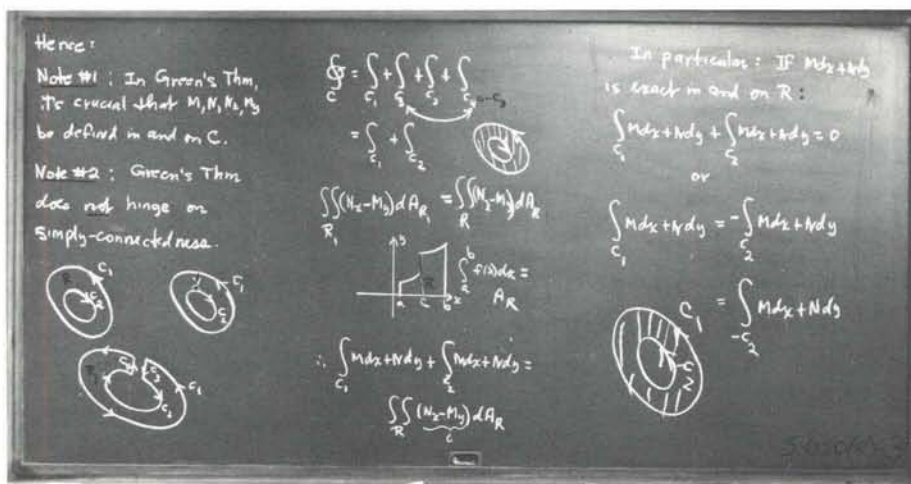 Hence:
Note #1: In Green's Thm,
it's crucial that M, N, Nx, My
be defined in and on C.
Note #2: Green's Thm
does not hinge on
simply-connectedness.
R C1
C2
C1
C2
R1 C4 C3 C1
C2
∮C = ∫C1 + ∫C3 + ∫C2 + ∫C4 = -C3
= ∫C1 + ∫C2
∬R1 (Nx-My)dAR1 = ∬R (Nx-My)dAR
y
a c b x
R
∫a^b f(x)dx =
AR
∴ ∫C1 Mdx+Ndy + ∫C2 Mdx+Ndy =
∬R (Nx-My)dAR
In particular: IF Mdx+Ndy
is exact in and on R:
∫C1 Mdx+Ndy + ∫C2 Mdx+Ndy = 0
or
∫C1 Mdx+Ndy = -∫C2 Mdx+Ndy
= ∫-C2 Mdx+Ndy
C1
-C2